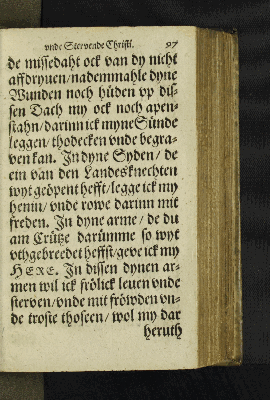 vnde Stervende Christi. 97
de missedaht ock van dy nicht
affdryuen/nademmahle dyne
Wunden noch hüden vp dis-
sen Dach my ock noch apen-
stahn/darinn ick myne Sünde
leggen/thodecken vnde begra-
ven kan. In dyne Syden/de
ein van den Landesknechten
wyt geöpent hefft/legge ick my
henin/vnde rowe darinn mit
freden. In dyne arme/de du
am Crütze darümme so wyt
vthgebreedet heffst/geve ick my
HERE. In dissen dynen ar-
men wil ick frölick leuen vnde
sterven/vnde mit fröwden vn-
de troste thoseen/wol my dar
heruth